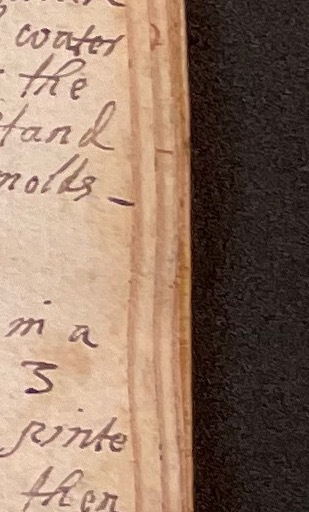 water
the
tand
molds -
in a
3
pinte
then